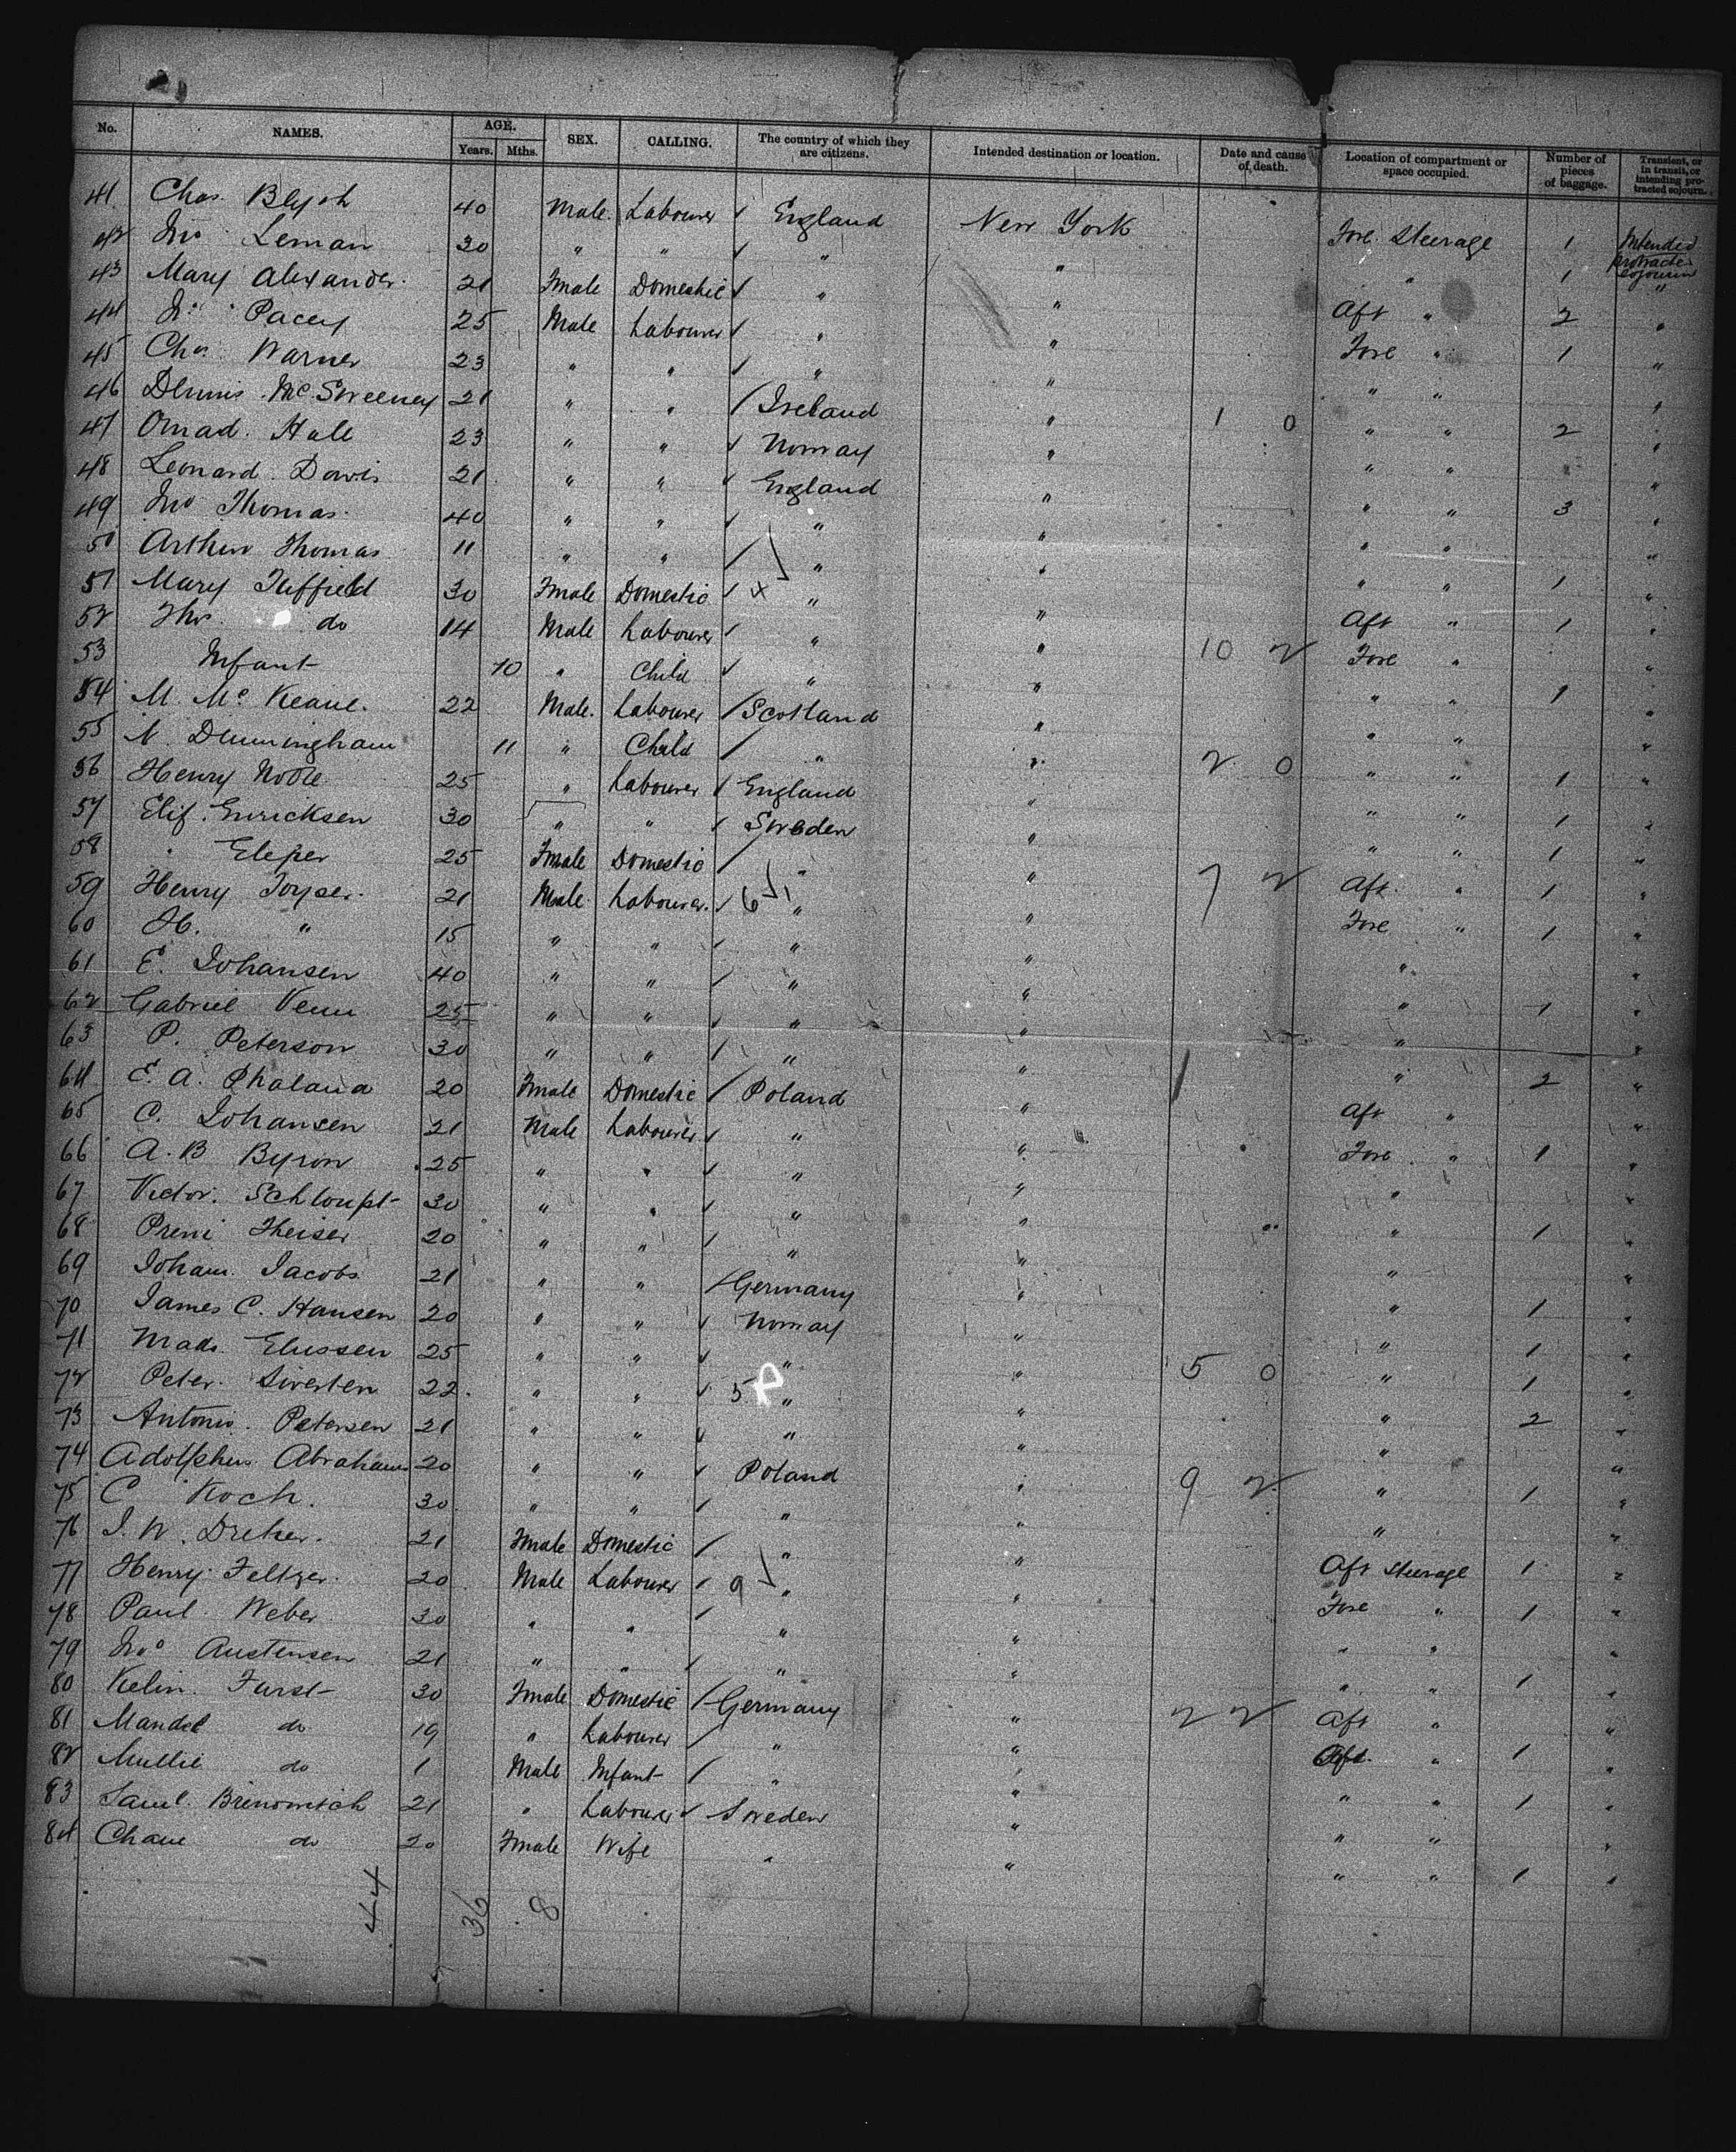 No. NAMES. AGE. Years. Mths. SEX. CALLING. The country of which they are citizens. Intended destination or location. Date and cause of death. Location of compartment or space occupied. Number of pieces of baggage. Transient, or in transit, or intending protracted sojourn.
41 Chas. Blyth 40 Male. Labourer England New York Fore Steerage 1 Intended protracted sojourn
42 Jno Leman 30 " " " " " 1 "
43 Mary Alexander 21 Fmale Domestic " " Aft " 2 "
44 Jno Pacey 25 Male Labourer " " Fore " 1 "
45 Chas Warner 23 " " " " " " "
46 Dennis McSweeney 21 " " Ireland " 1 0 " " 2 "
47 Omad. Hall 23 " " Norway " " " "
48 Leonard Davis 21 " " England " " " 3 "
49 Jno Thomas 40 " " " " " " "
50 Arthur Thomas 11 " " " " " " 1 "
51 Mary Tuffield 30 Fmale Domestic x " " Aft " 1 "
52 Thos. do 14 Male Labourer " " 10 2 Fore " "
53 Infant 10 " Child " " " " 1 "
54 M. McKeane. 22 Male. Labourer Scotland " " " "
55 N. Dunningham 11 " Child " " 2 0 " " 1 "
56 Henry Noble 25 " Labourer England " " " 1 "
57 Elif. Enricksen 30 " " Sweden " " " 1 "
58 " Eleper 25 Fmale Domestic " " 7 2 Aft " 1 "
59 Henry Joyser 21 Male Labourer 6 1 " " Fore " 1 "
60 H. " 15 " " " " " "
61 E. Johansen 40 " " " " " 1 "
62 Gabriel Venn 25 " " " " " "
63 P. Peterson 30 " " " " " 2 "
64 E. A. Phalana 20 Fmale Domestic Poland " Aft " "
65 C. Johansen 21 Male Labourer " " Fore " 1 "
66 A. B Byron 25 " " " " " "
67 Victor. Schloupt 30 " " " " " 1 "
68 Preni Theiser 20 " " " " " "
69 Joham. Jacobs 21 " " Germany " " 1 "
70 James C. Hansen 20 " " Norway " " 1 "
71 Mads. Elussen 25 " " " " 5 0 " 1 "
72 Peter. Siverten 22 " " 5 " " " 2 "
73 Antonio. Petersen 21 " " " " " "
74 Adolphus Abrahams 20 " " Poland " 9 2 " 1 "
75 C Koch. 30 " " " " " "
76 J. W. Dreher. 21 Fmale Domestic " " Aft Steerage 1 "
77 Henry Feltzer 20 Male Labourer 9 " " Fore " 1 "
78 Paul Weber 30 " " " " " " "
79 Jno Austensen 21 " " " " " " 1 "
80 Kelin. Furst 30 Fmale Domestic Germany " 2 2 Aft " "
81 Mandel do 19 " Labourer " " Aft " 1 "
82 Mullie do 1 Male Infant " " " " 1 "
83 Saml. Brinowitch 21 " Labourer Sweden " " " "
84 Chane do 20 Fmale Wife " " " " 1 "
44 36 8